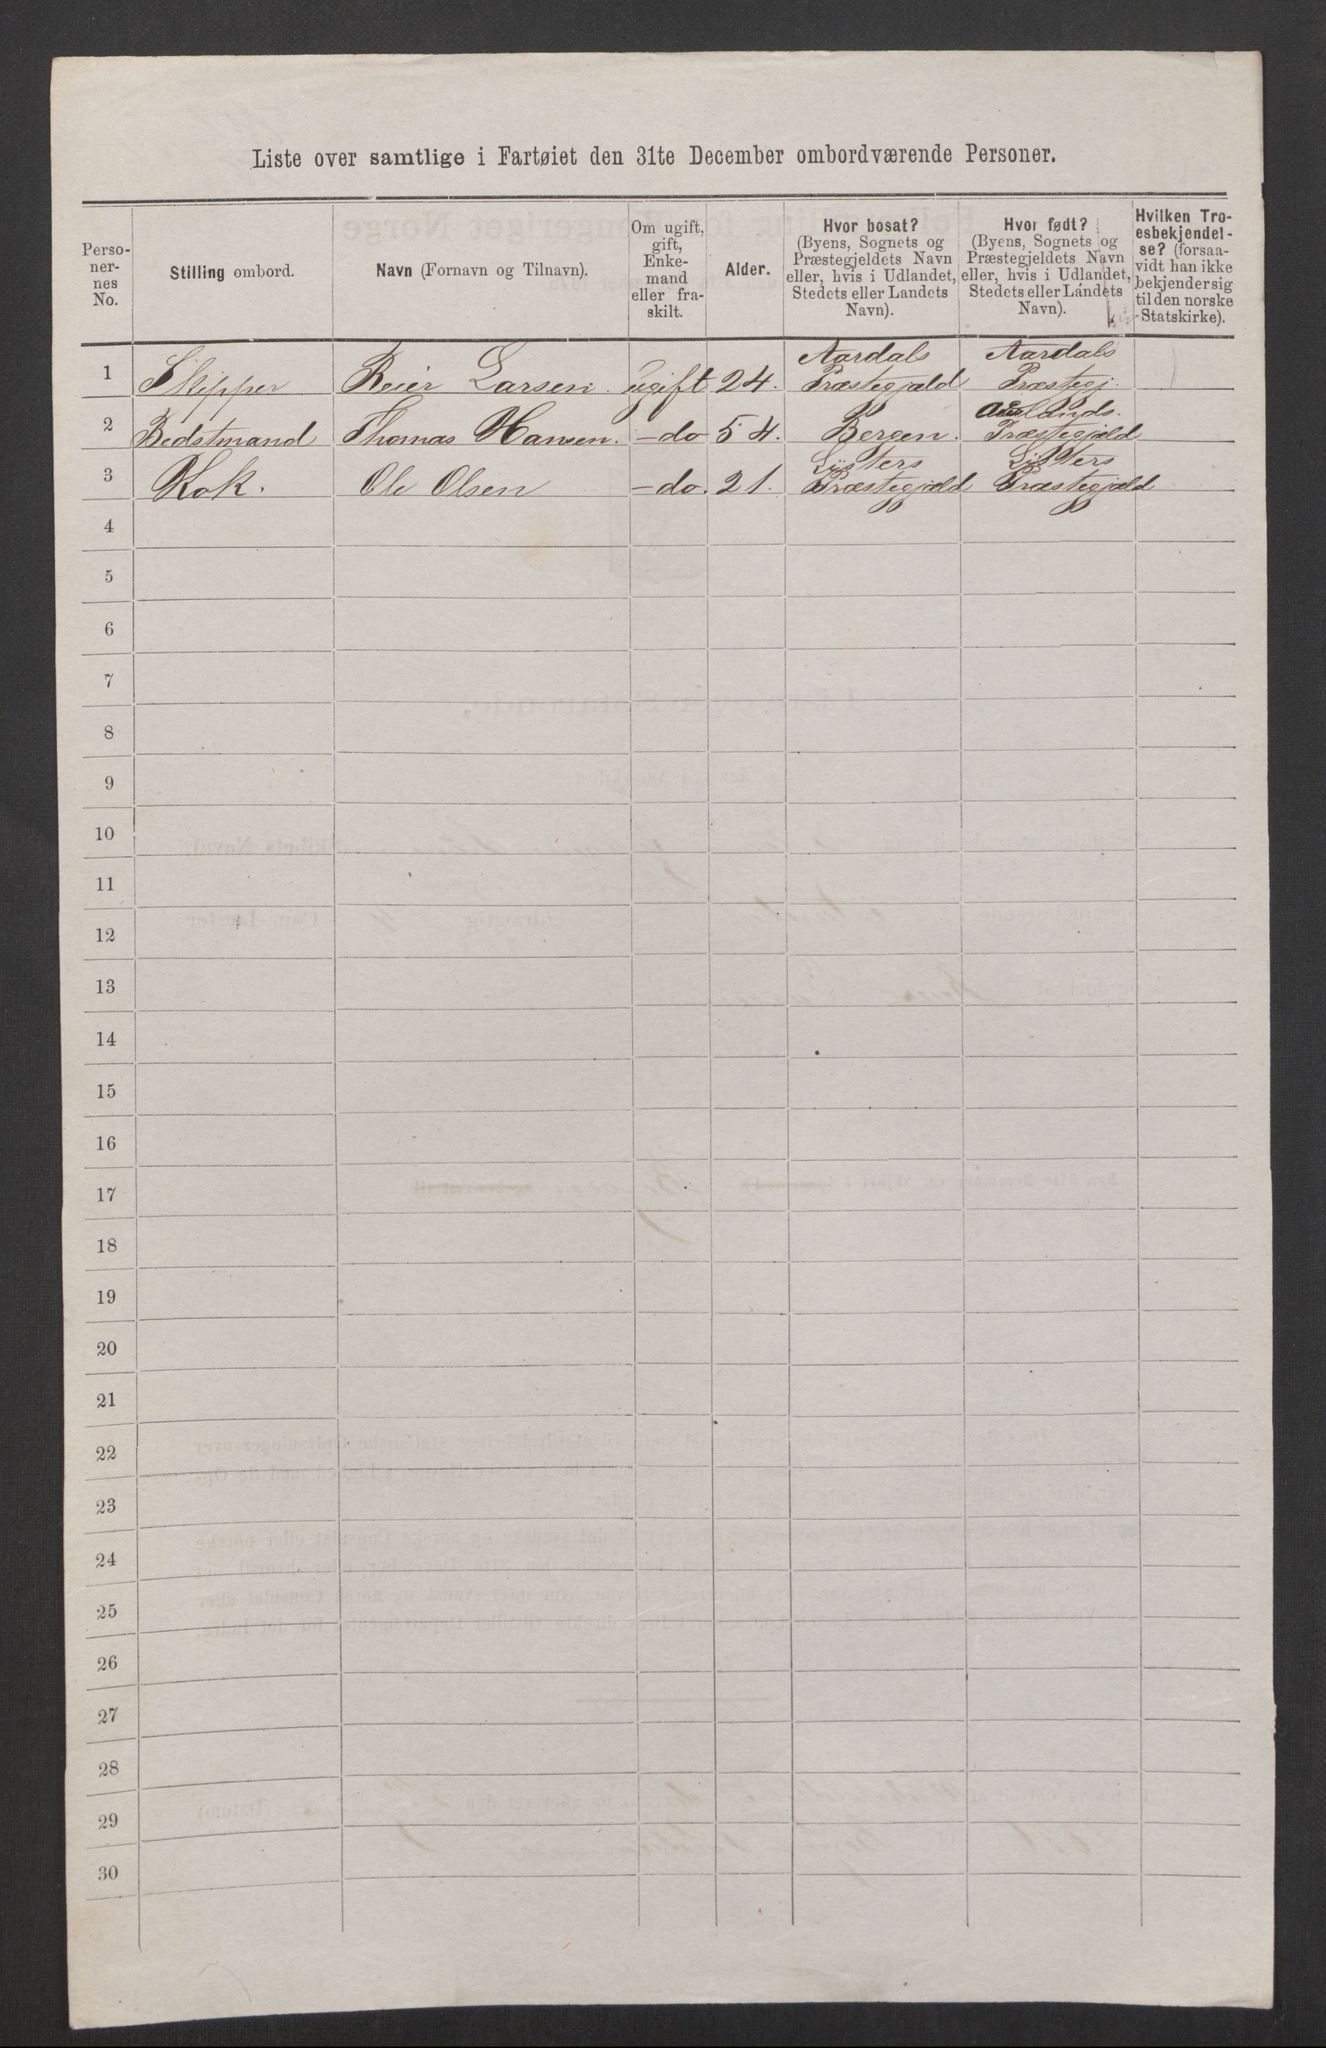 Liste over samtlige i Fartøiet den 31te December ombordværende Personer.
Perso-
ner-
nes
No.
Stilling ombord.
Navn (Fornavn og Tilnavn).
Om ugift,
gift,
Enke-
mand
eller fra-
skilt.
Alder.
Hvor bosat?
(Byens, Sognets og
Præstegjeldets Navn
eller, hvis i Udlandet,
Stedets eller Landets
Navn).
Hvor født?
(Byens, Sognets og
Præstegjeldets Navn
eller, hvis i Udlandet,
Stedets eller Landets
Navn).
Hvilken Tro-
esbekjendel-
se? (forsaa-
vidt han ikke
bekjender sig
til den norske
Statskirke).
1 Skipper Reier Larsen. ugift 24. Aardals Præstegjæld Aardals Præstegj.
2 Bedstmand Thomas Hansen. - do 54. Bergen. Aurlands. Præstegjæld
3 Kok. Ole Olsen - do. 21. Lÿsters Præstegjæld Lÿsters Præstegjæld
4
5
6
7
8
9
10
11
12
13
14
15
16
17
18
19
20
21
22
23
24
25
26
27
28
29
30